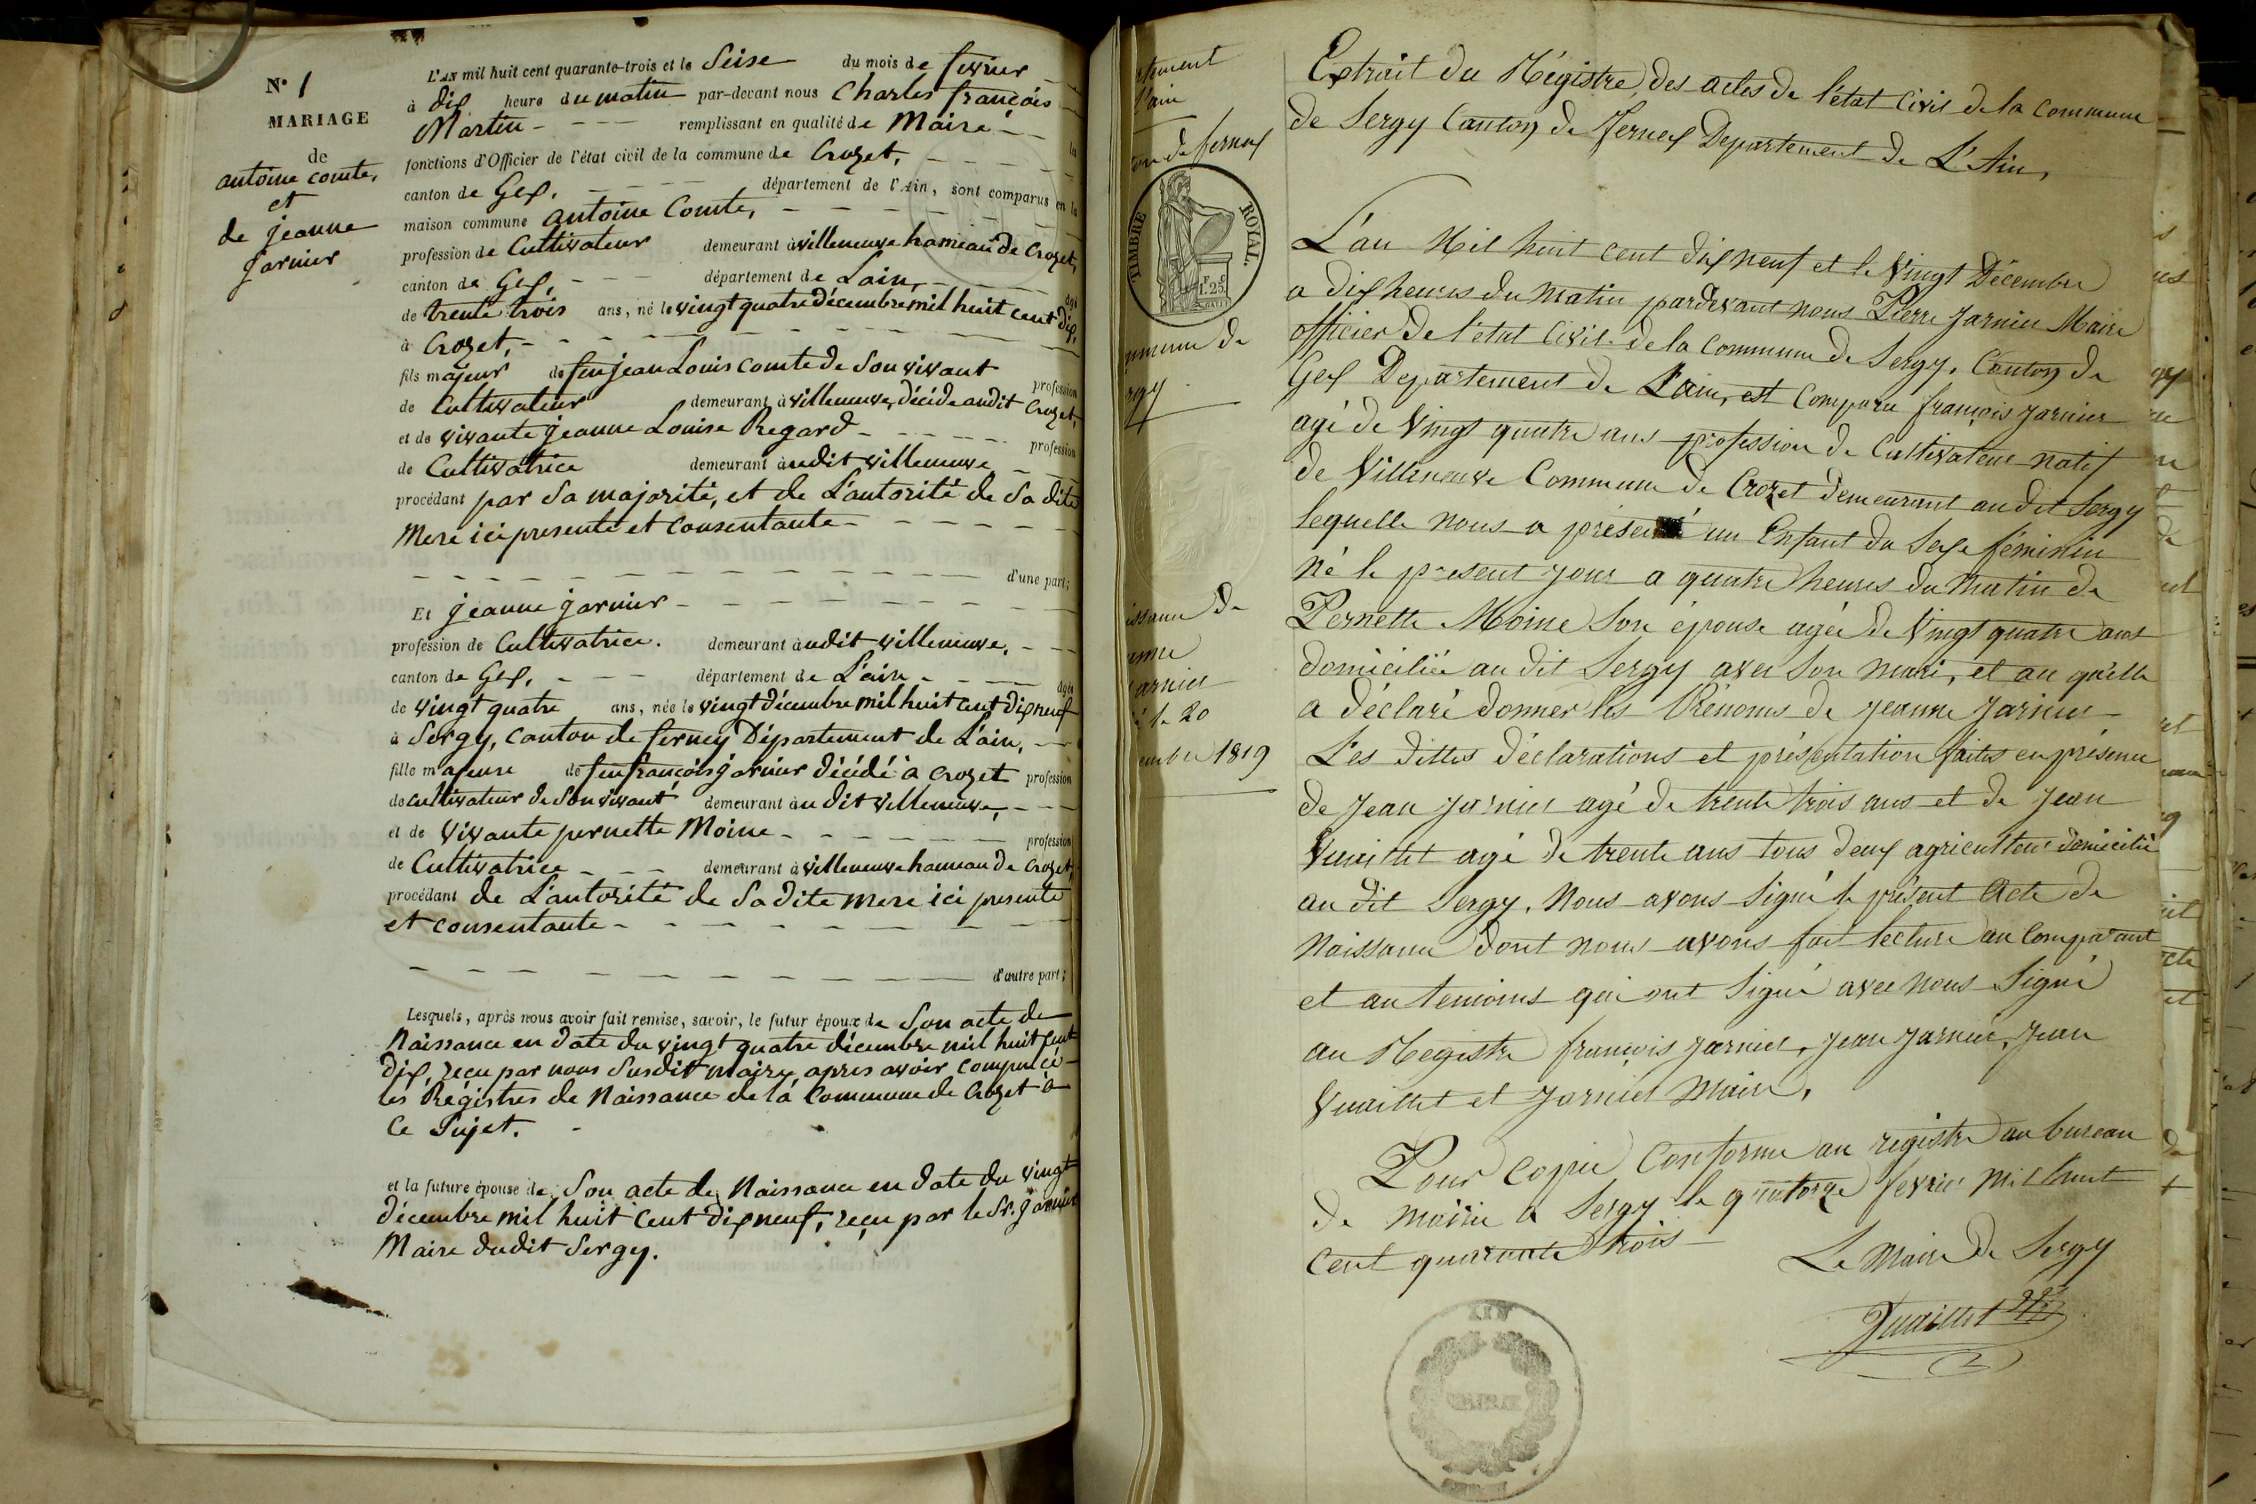 N° 1
MARIAGE
de
antoine comte,
et
de jeanne
jarnier
L'AN mil huit cent quarante-trois et le Seise du mois de fevrier
à dix heure du matin par-devant nous Charles françois
Martin - - - - remplissant en qualité de Maire - - la
fonctions d'Officier de l'état civil de la commune de Crozet, - - -
canton de Gex, - - - - département de l'Ain, sont comparus en la
maison commune antoine Comte, - - - - -
profession de Cultivateur demeurant à villeneuve hameau de Crozet,
canton de Gex, - département de Lain, - - - - âgé
de trente trois ans, né le vingt quatre décembre mil huit cent dix,
à Crozet, - - - - - - - - -
fils majeur de feu jean Louis comte de Son vivant profession
de Cultivateur demeurant à villeneuve, décédé audit Crozet,
et de vivante jeanne Louise Regard - - - - - profession
de Cultivatrice demeurant à udit villeneuve - -
procédant par Sa majorité, et de L'autorité de Sa dite
Mere ici presente et consentante - - - - - -
- - - - - - - - - - - - - d'une part;
Et jeanne jarnier - - - - - - - -
profession de Cultivatrice. demeurant à udit villeneuve, - - -
canton de Gex, - - - département de L'ain - - - - - âgée
de vingt quatre ans, née le vingt décembre mil huit cent dix neuf
à Sergy, canton de ferney Département de L'ain, - -
fille majeure de feu françois jarnier décédé à Crozet profession
de cultivateur de Son vivant demeurant à u dit villeneuve, - - -
et de vivante pernette Moine - - - - - - profession
de Cultivatrice - - - demeurant à villeneuve hameau de Crozet,
procédant de L'autorité de Sa dite mere ici presente
et consentante - - - - - - - -
- - - - - - - - - - - d'autre part;
Lesquels, après nous avoir fait remise, savoir, le futur époux de Son acte de
Naissance en date du vingt quatre décembre mil huit cent
dix, reçu par nous Susdit maire, apres avoir compulcé
les Régistres de Naissance de la Commune de Crozet à
Ce Sujet. -
et la future épouse de Son acte de Naissance en date du vingt
décembre mil huit Cent dix neuf, reçu par le Sr. jarnier
Maire dudit Sergy.
tement
l'ain
ton de fernex
TIMBRE ROYAL.
F. C.
1. 25.
mmune de
rgy
issance de
anne
arnier
é le 20
embre 1819
Extrait du Régistre des actes de l'état Civil de la Commune
de Sergy Canton de Fernex Departement de L'Ain,
L'an Mil huit cent dix neuf et le Vingt Décembre
a dix heures du Matin pardevant nous Pierre Jarnier Maire
officier de l'état Civil de la Commune de Sergy, Canton de
Gex Departement de L'ain, est Comparu françois Jarnier
agé de Vingt quatre ans profession de Cultivateur natif
de Villeneuve Commune de Crozet demeurant au dit Sergy
lequelle nous a présenté un Enfant du Sexe féminin
Né le present Jour a quatre heures du Matin de
Pernette Moine Son épouse agée de Vingt quatre ans
domiciliée au dit Sergy avec Son Mari, et au quelle
a déclaré donner les Prénoms de Jeanne Jarnier
Les dittes déclarations et présentation faites en présence
de Jean Jarnier agé de trente trois ans et de Jean
Vuaillet agé de trente ans tous deux agriculteur domicilié
au dit Sergy. Nous avons Signé le présent Acte de
Naissance dont nous avons fait lecture au Comparant
et au temoins qui ont Signé avec Nous Signé
au Registre françois Jarnier, Jean Jarnier, Jean
Vuaillet et Jarnier Maire,
Pour copie Conforme au registre au bureau
de Mairie a Sergy le quatorze fevrier Mil huit
Cent quarante trois
Le Maire de Sergy
Vuaillet